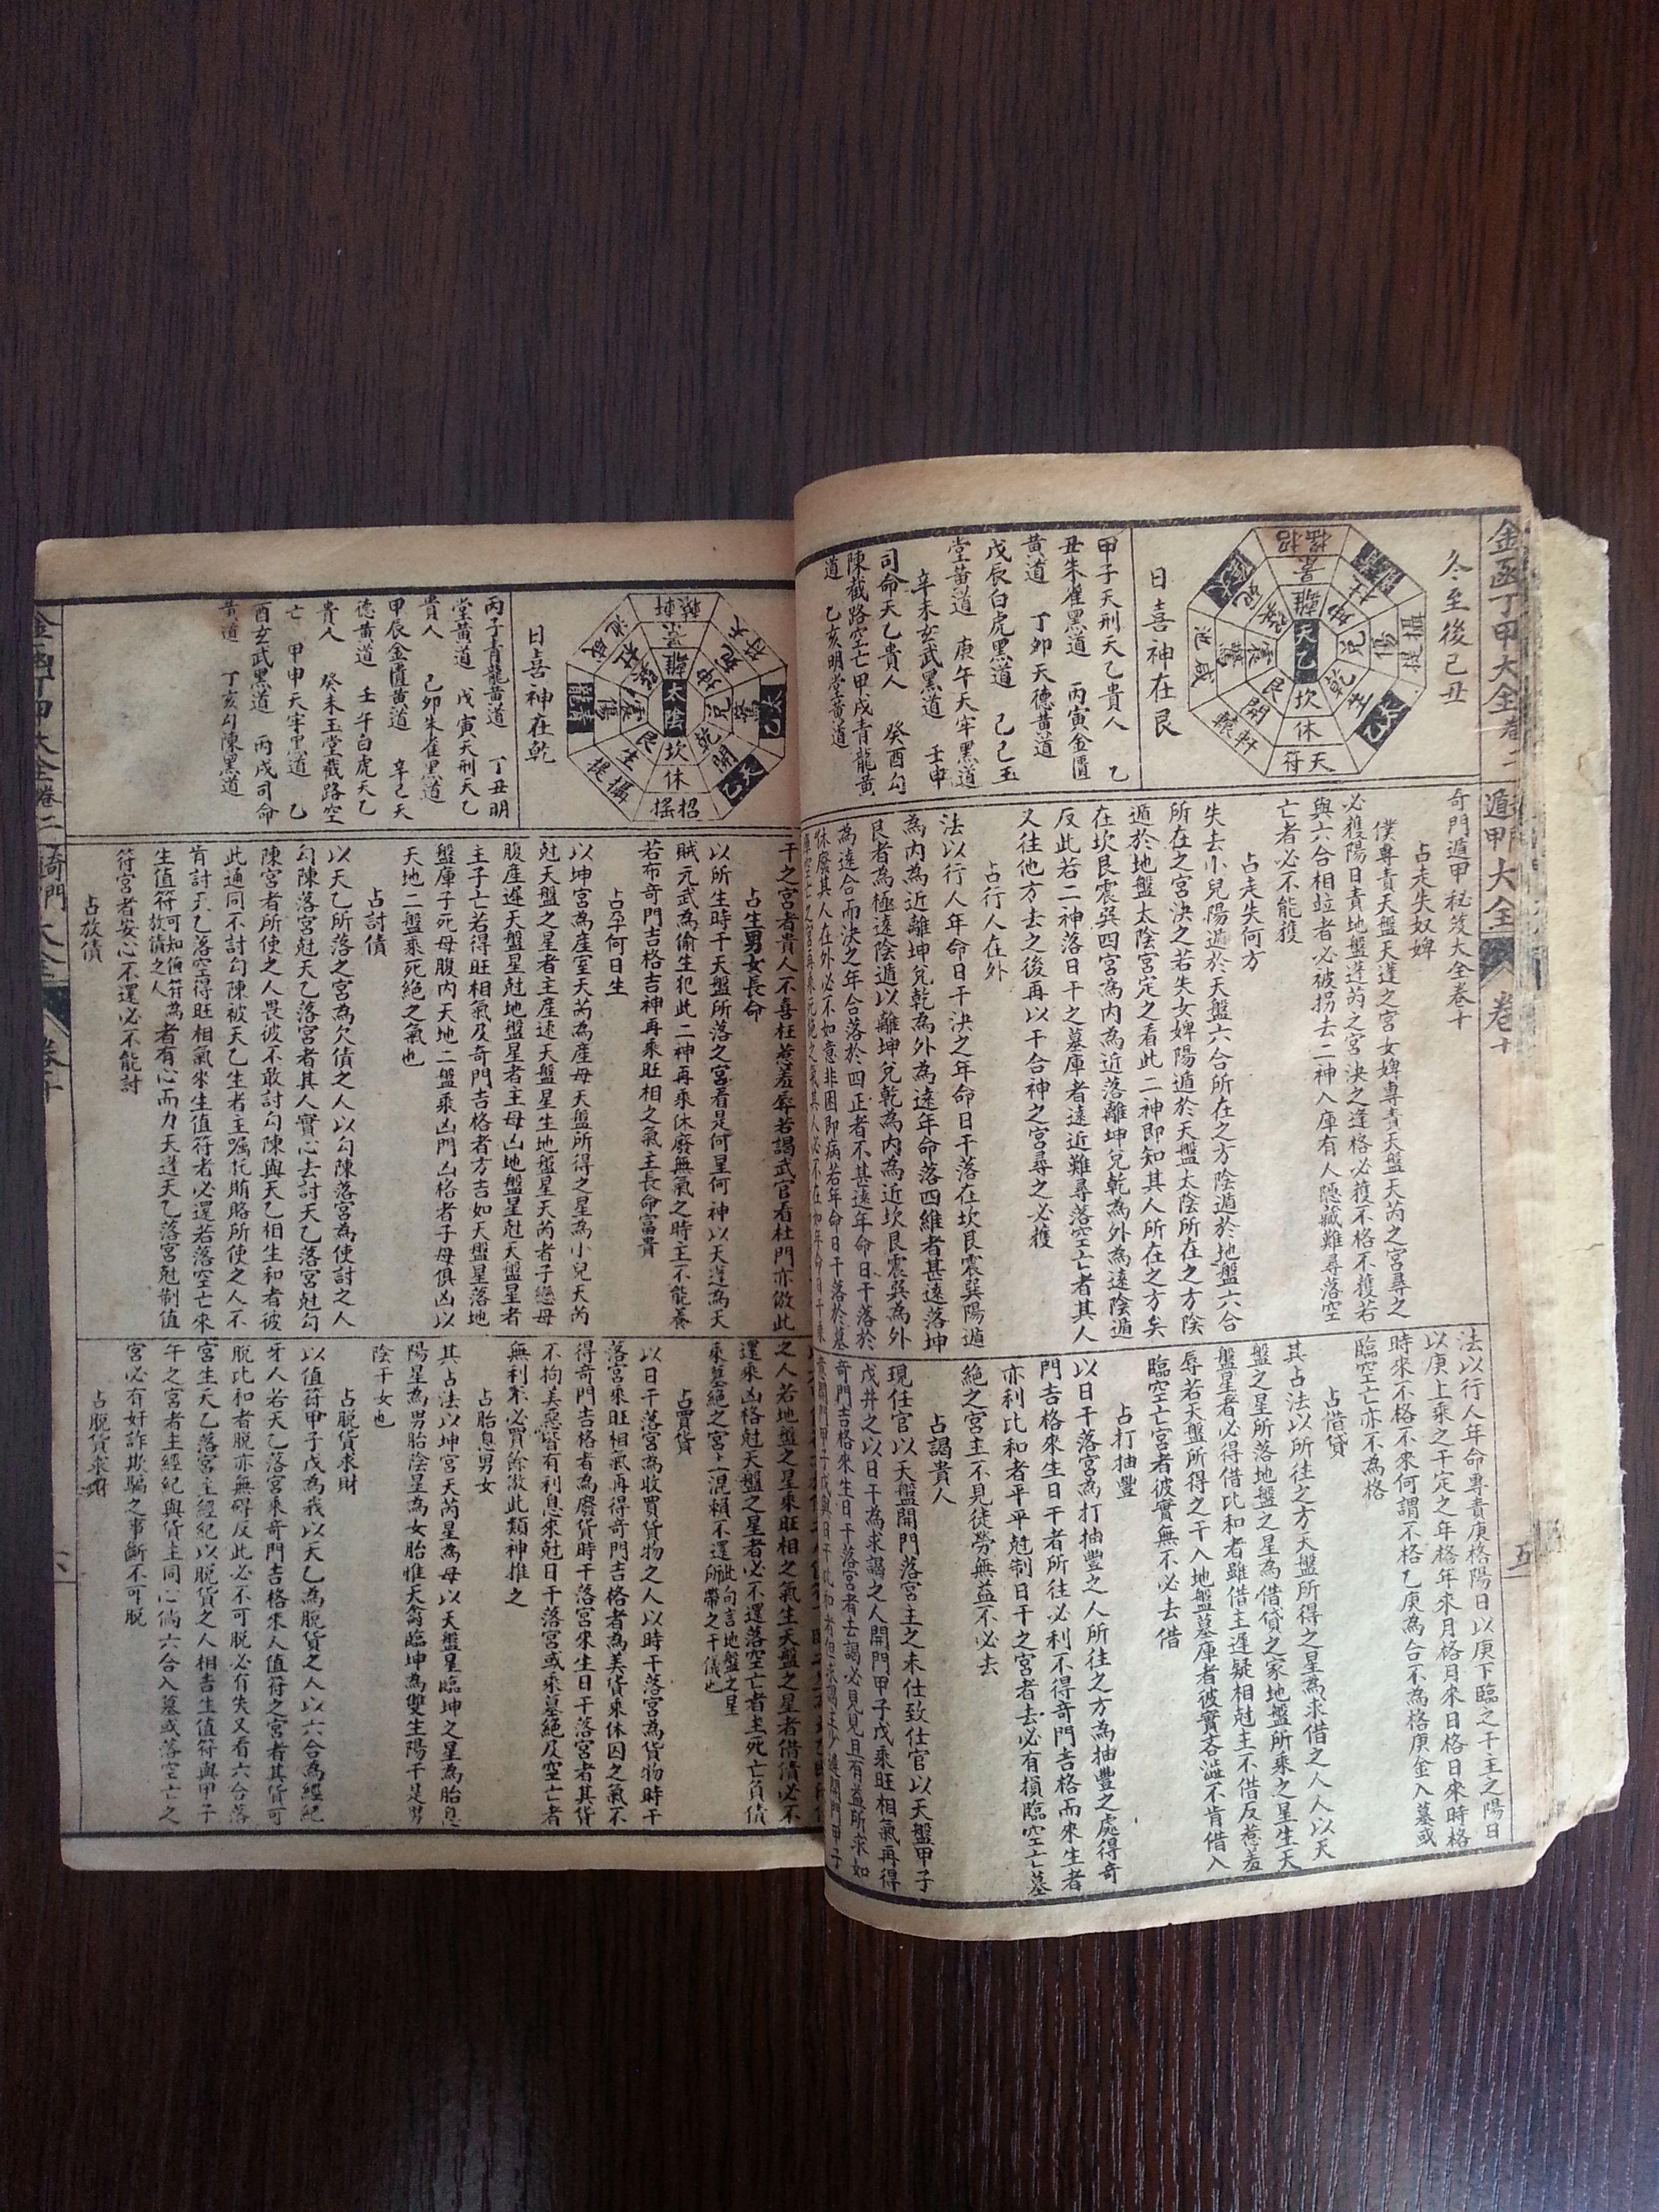 金函丁甲大全卷二
遁甲大全
卷十
五
冬至後己丑
天乙
坎
休
天符
日喜神在艮
甲子天刑天乙貴人　乙
丑朱雀黑道　丙寅金匱
黃道　丁卯天德黃道
戊辰白虎黑道　己巳玉
堂黃道　庚午天牢黑道
辛未玄武黑道　壬申
司命天乙貴人　癸酉勾
陳截路空亡甲戌青龍黃
道　乙亥明堂黃道
奇門遁甲秘笈大全卷十
占走失奴婢
僕專責天盤天蓬之宮女婢專責天盤天芮之宮尋之
必獲陽日責地盤蓬芮之宮決之逢格必獲不格不獲若
與六合相竝者必被拐去二神入庫有人隱藏難尋落空
亡者必不能獲
占走失何方
失去小兒陽遁於天盤六合所在之方陰遁於地盤六合
所在之宮決之若失女婢陽遁於天盤太陰所在之方陰
遁於地盤太陰宮定之看此二神即知其人所在之方矣
在坎艮震巽四宮為內為近落離坤兌乾為外為遠陰遁
反此若二神落日干之墓庫者遠近難尋落空亡者其人
又往他方去之後再以干合神之宮尋之必獲
占行人在外
法以行人年命日干決之年命日干落在坎艮震巽陽遁
為內為近離坤兌乾為外為遠年命落四維者甚遠落坤
艮者為極遠陰遁以離坤兌乾為內為近坎艮震巽為外
為遠合而決之年合落於四正者不甚遠年命日干落於
休廢其人在外必不如意非困即病若年命日干落於墓
法以行人年命專責庚格陽日以庚下臨之干主之陽日
以庚上乘之干定之年格年來月格月來日格日來時格
時來不格不來何謂不格乙庚為合不為格庚金入墓或
臨空亡亦不為格
占借貸
其占法以所往之方天盤所得之星為求借之人人以天
盤之星所落地盤之星為借貸之家地盤所乘之星生天
盤星者必得借比和者雖借主遲疑相尅主不借反惹羞
辱若天盤所得之干入地盤墓庫者彼實吝澁不肯借入
臨空亡宮者彼實無不必去借
占打抽豐
以日干落宮為打抽豐之人所往之方為抽豐之處得奇
門吉格來生日干者所往必利不得奇門吉格而來生者
亦利比和者平平尅制日干之宮者去必有損臨空亡墓
絕之宮主不見徒勞無益不必去
占謁貴人
現任官以天盤開門落宮主之未仕致仕官以天盤甲子
戊井之以日干為求謁之人開門甲子戊乘旺相氣再得
奇門吉格來生日干落宮者去謁必見見且有益所求如
太陰
坎
休
招搖
日喜神在乾
丙子青龍黃道　丁丑明
堂黃道　戊寅天刑天乙
貴人　己卯朱雀黑道
甲辰金匱黃道　辛巳天
德黃道　壬午白虎天乙
貴人　癸未玉堂截路空
亡　甲申天牢黑道　乙
酉玄武黑道　丙戌司命
黃道　丁亥勾陳黑道
干之宮者貴人不喜枉惹羞辱若謁武官看杜門亦倣此
占生男女長命
以所生時干天盤所落之宮看是何星何神以天蓬為天
賊元武為偷生犯此二神再乘休廢無氣之時主不能養
若布奇門吉格吉神再乘旺相之氣主長命富貴
占孕何日生
以坤宮為產室天芮為產母天盤所得之星為小兒天芮
尅天盤之星者主產速天盤星生地盤星天芮者子戀母
腹產遲天盤星尅地盤星者主母凶地盤星尅天盤星者
主子亡若得旺相氣及奇門吉格者方吉如天盤星落地
盤庫子死母腹內天地二盤乘凶門凶格者子母俱凶以
天地二盤乘死絕之氣也
占討債
以天乙所落之宮為欠債之人以勾陳落宮為使討之人
勾陳落宮尅天乙落宮者其人實心去討天乙落宮尅勾
陳宮者所使之人畏彼不敢討勾陳與天乙相生和者彼
此通同不討勾陳被天乙生者主囑托賄賂所使之人不
肯討天乙落空得旺相氣來生值符者必還若落空亡來
生值符可知值符為放債之人者有心而力天蓬天乙落宮尅制值
符宮者安心不還必不能討
占放債
之人若地盤之星乘旺相之氣生天盤之星者借債必不
還乘凶格尅天盤之星者必不還落空亡者主死亡負債
乘墓絕之宮主混賴不還此句言地盤之星所帶之干儀也
占買貨
以日干落宮為收買貨物之人以時干落宮為貨物時干
落宮來旺相氣再得奇門吉格者為美貨乘休囚之氣不
得奇門吉格者為廢貨時干落宮來生日干落宮者其貨
不拘美惡皆有利息來尅日干落宮或乘墓絕及空亡者
無利不必買餘倣此類神推之
占胎息男女
其占法以坤宮天芮星為母以天盤星臨坤之星為胎息
陽星為男胎陰星為女胎惟天禽臨坤為雙生陽干是男
陰干女也
占脫貨求財
以值符甲子戊為我以天乙為脫貨之人以六合為經紀
牙人若天乙落宮乘奇門吉格來人值符之宮者其貨可
脫比和者脫亦無碍反此必不可脫必有失又看六合落
宮生天乙落宮主經紀以脫貨之人相吉生值符與甲子
午之宮者主經紀與貨主同心倘六合入墓或落空亡之
宮必有奸詐欺騙之事斷不可脫
占脫貨求財